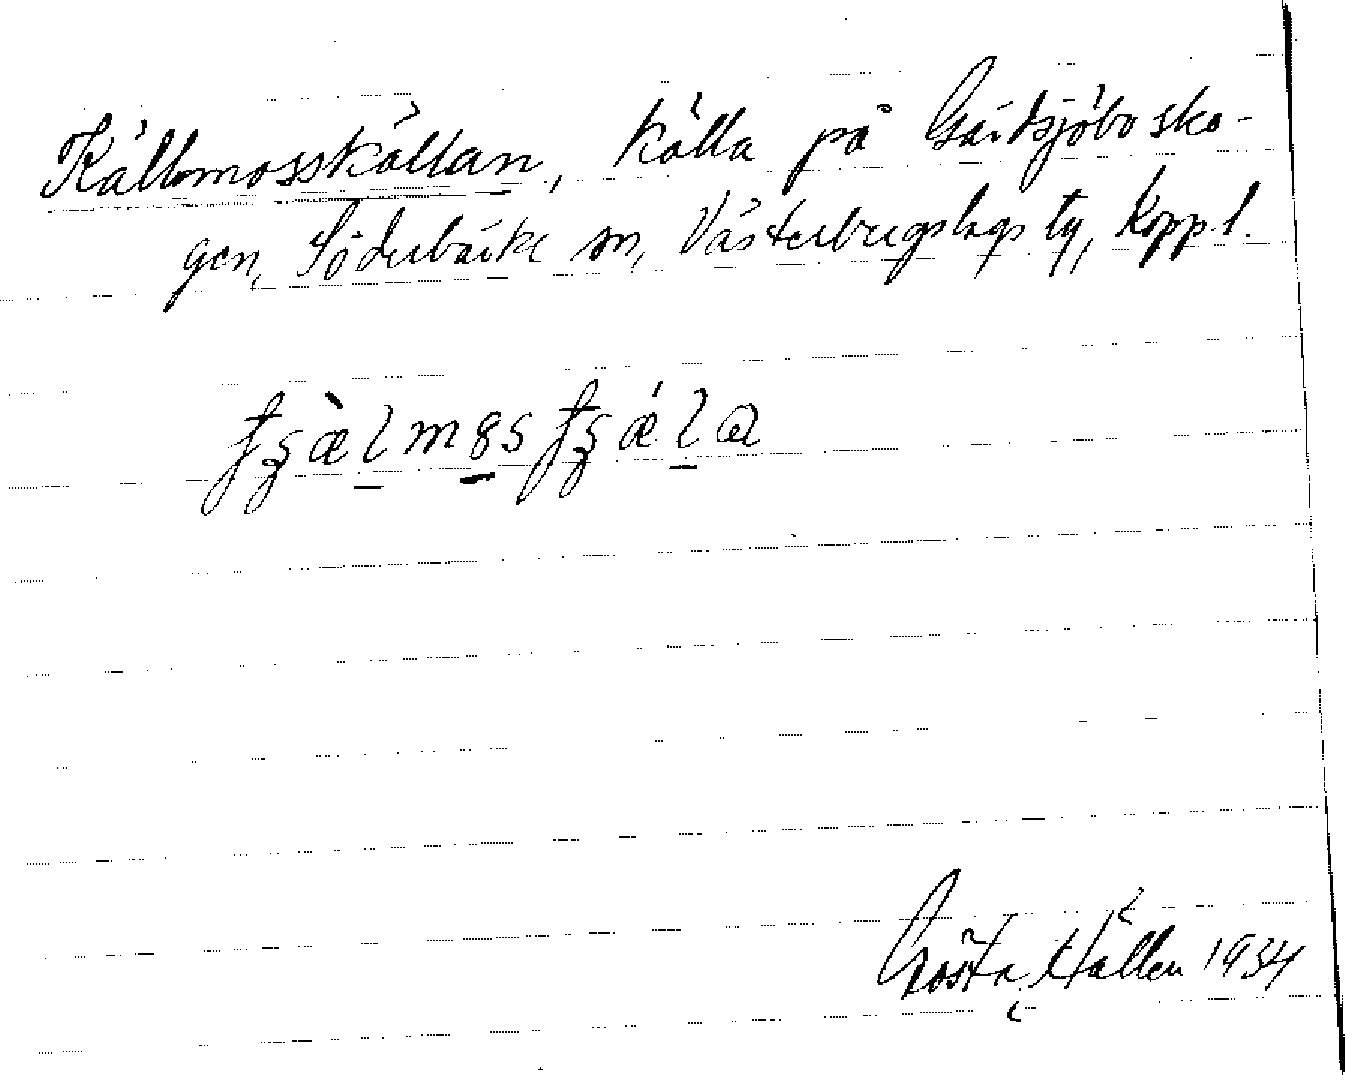 Källmosskällan, källa på Gärdsjöbo sko-
gen, Söderbärke sn, Västerbergslags tg, Kopp l.
Gösta Hållen 1934